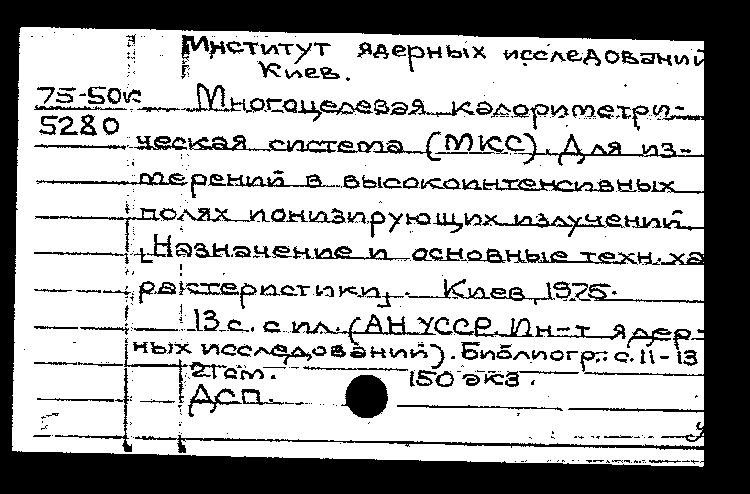 Институт ядерных исследований
Киев.
75-50к Многоцелевая калориметри-
5280 ческая система (МКС). Для из-
мерений в высокоинтенсивных
полях ионизирующих излучений.
[Назначение и основные техн. ха
рактеристики]. Киев, 1975.
13 с. с ил. (АН УССР. Ин-т ядер-
ных исследований). Библиогр.: с. 11-13
21 см. 150 экз.
ДСП.